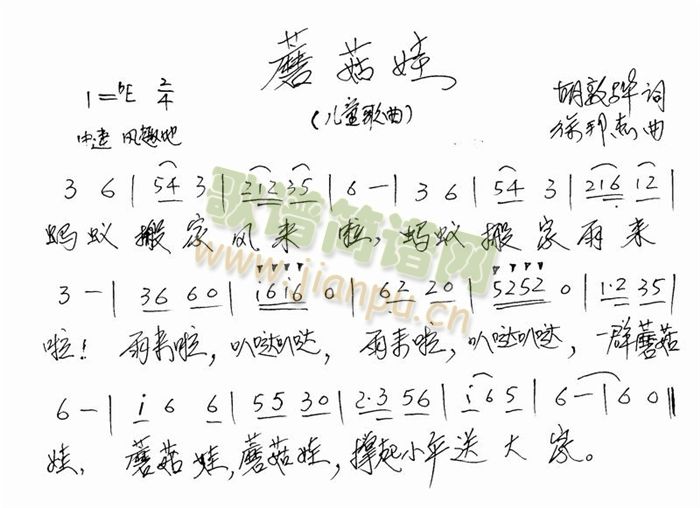 蘑菇娃
(儿童歌曲)
1=♭E 2/4
中速 风趣地
词
曲
3 6 | 54 3 | 212 35 | 6 - | 3 6 | 54 3 | 216 12 |
蚂蚁搬家风来啦,蚂蚁搬家雨来
3 - | 36 60 | i6i6 0 | 62 20 | 5252 0 | 1·2 35 |
啦!雨来啦,叭哒叭哒,雨来啦,叭哒叭哒,一群蘑菇
6 - | i 6 6 | 55 30 | 2·3 56 | i 6 5 | 6 - | 6 0 ‖
娃,蘑菇娃,蘑菇娃,撑起小伞送大家。
歌谱简谱网
www.jianpu.cn